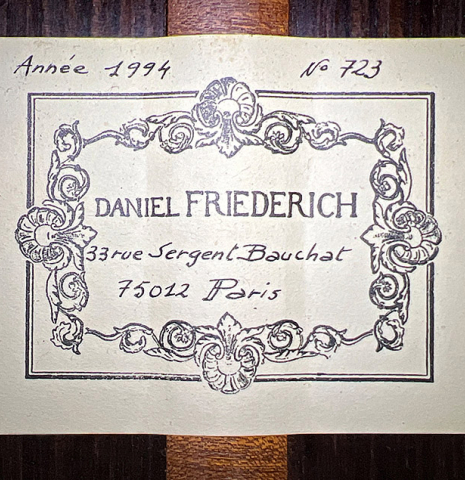 Année 1994 № 723
DANIEL FRIEDERICH
33 rue Sergent Bauchat
75012 Paris